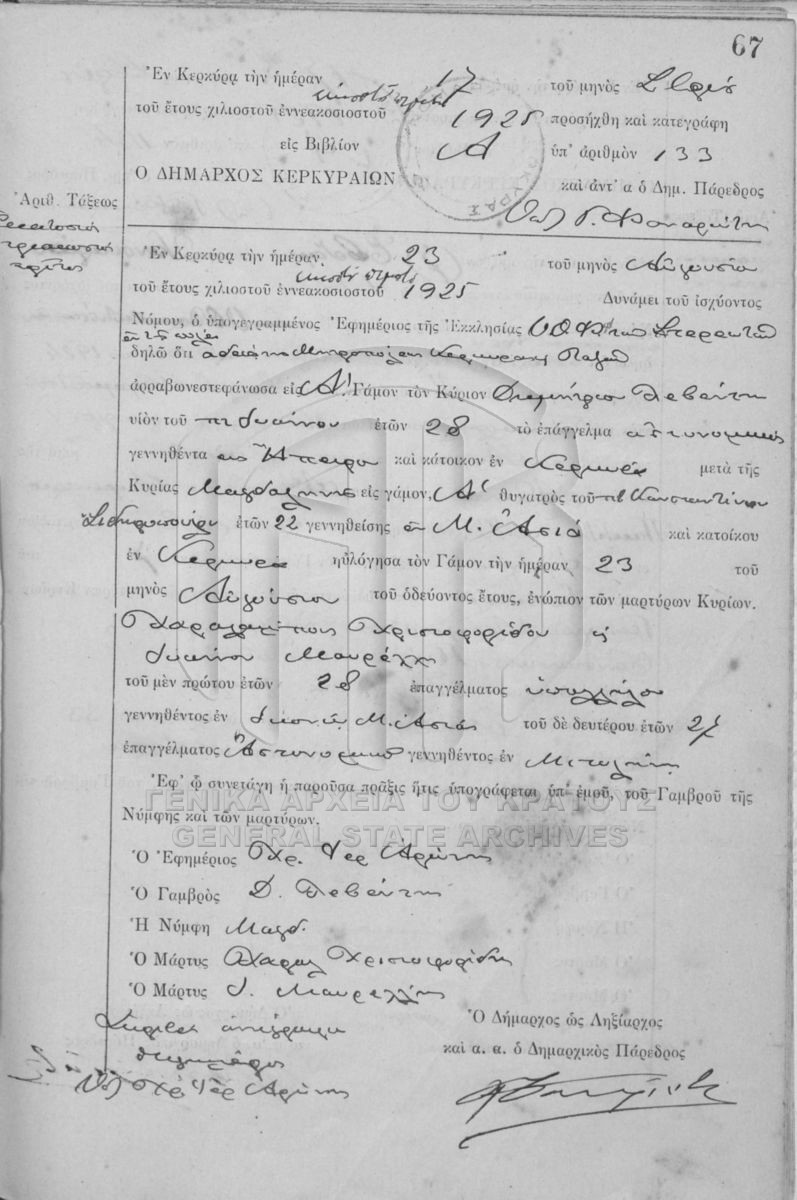 67
Ἐν Κερκύρᾳ τὴν ἡμέραν 17 τοῦ μηνὸς
τοῦ ἔτους χιλιοστοῦ ἐννεακοσιοστοῦ εἰκοστοῦ πέμπτου 1925 προσήχθη καὶ κατεγράφη
εἰς Βιβλίον Α ὑπ' ἀριθμὸν 133
Ο ΔΗΜΑΡΧΟΣ ΚΕΡΚΥΡΑΙΩΝ καὶ ἀντ' α ὁ Δημ. Πάρεδρος
Ἀριθ. Τάξεως
Ἐν Κερκύρᾳ τὴν ἡμέραν 23 τοῦ μηνὸς Αὐγούστου
τοῦ ἔτους χιλιοστοῦ ἐννεακοσιοστοῦ εἰκοστοῦ πέμπτου 1925 Δυνάμει τοῦ ἰσχύοντος
Νόμου, ὁ ὑπογεγραμμένος Ἐφημέριος τῆς Ἐκκλησίας
δηλῶ ὅτι ἀδείᾳ τῆς Μητροπόλεως Κερκύρας
ἀρραβωνεστεφάνωσα εἰς Α! Γάμον τὸν Κύριον Δημήτριον Λεβέντη
υἱὸν τοῦ Ἰωάννου ἐτῶν 28 τὸ ἐπάγγελμα ἀστυνομικὸς
γεννηθέντα εἰς Ἤπειρον καὶ κάτοικον ἐν Κερκύρᾳ μετὰ τῆς
Κυρίας Μαγδαληνῆς εἰς γάμον, Α' θυγατρὸς τοῦ Κωνσταντίνου
Σιδηροπούλου ἐτῶν 22 γεννηθείσης ἐν Μ. Ἀσίᾳ καὶ κατοίκου
ἐν Κερκύρᾳ ηὐλόγησα τὸν Γάμον τὴν ἡμέραν 23 τοῦ
μηνὸς Αὐγούστου τοῦ ὁδεύοντος ἔτους, ἐνώπιον τῶν μαρτύρων Κυρίων.
Χαραλάμπους Χριστοφορίδου ἢ
Ἰωάννου Μαυρέλλη
τοῦ μὲν πρώτου ἐτῶν 28 ἐπαγγέλματος ὑπαλλήλου
γεννηθέντος ἐν Μ. Ἀσίας τοῦ δὲ δευτέρου ἐτῶν 27
ἐπαγγέλματος Ἀστυνομικοῦ γεννηθέντος ἐν Μιτυλήνῃ
Ἐφ' ᾧ συνετάγη ἡ παροῦσα πρᾶξις ἥτις ὑπογράφεται ὑπ' ἐμοῦ, τοῦ Γαμβροῦ τῆς
Νύμφης καὶ τῶν μαρτύρων.
ΓΕΝΙΚΑ ΑΡΧΕΙΑ ΤΟΥ ΚΡΑΤΟΥΣ
GENERAL STATE ARCHIVES
Ὁ Ἐφημέριος Χρ.
Ὁ Γαμβρὸς Δ. Λεβέντης
Ἡ Νύμφη Μαγδ.
Ὁ Μάρτυς Χαραλ Χριστοφορίδης
Ὁ Μάρτυς Ἰ. Μαυρέλλης
Ὁ Δήμαρχος ὡς Ληξίαρχος
καὶ α. α. ὁ Δημαρχικὸς Πάρεδρος